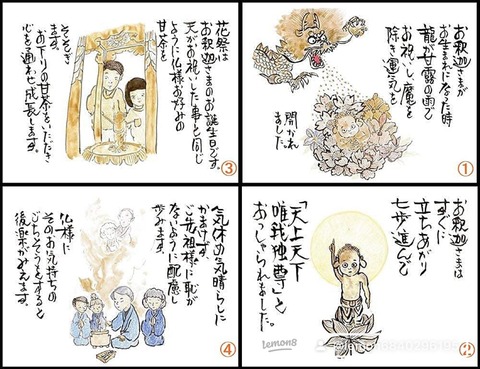 お釈迦さまが
お生まれになった時
龍が甘露の雨で
お祝いし魔を
除き運気を
開かれ
ました。
①
お釈迦さまは
すぐに
立ちあがり
七歩進んで
「天上天下
唯我独尊」と
おっしゃられました。
②
lemon8
花祭は
お釈迦さまのお誕生日です。
天がお祝いした事と同じ
ように仏様お好みの
甘茶を
そそぎ
ます。
お下りの甘茶をいただき
心を通わせ成長します。
③
気休め気晴らしに
かまけず、
ご先祖様に恥が
ないように配慮し
歩みます。
仏様に
そのお気持ちの
ごちそうをすると
後楽がみえます。
④